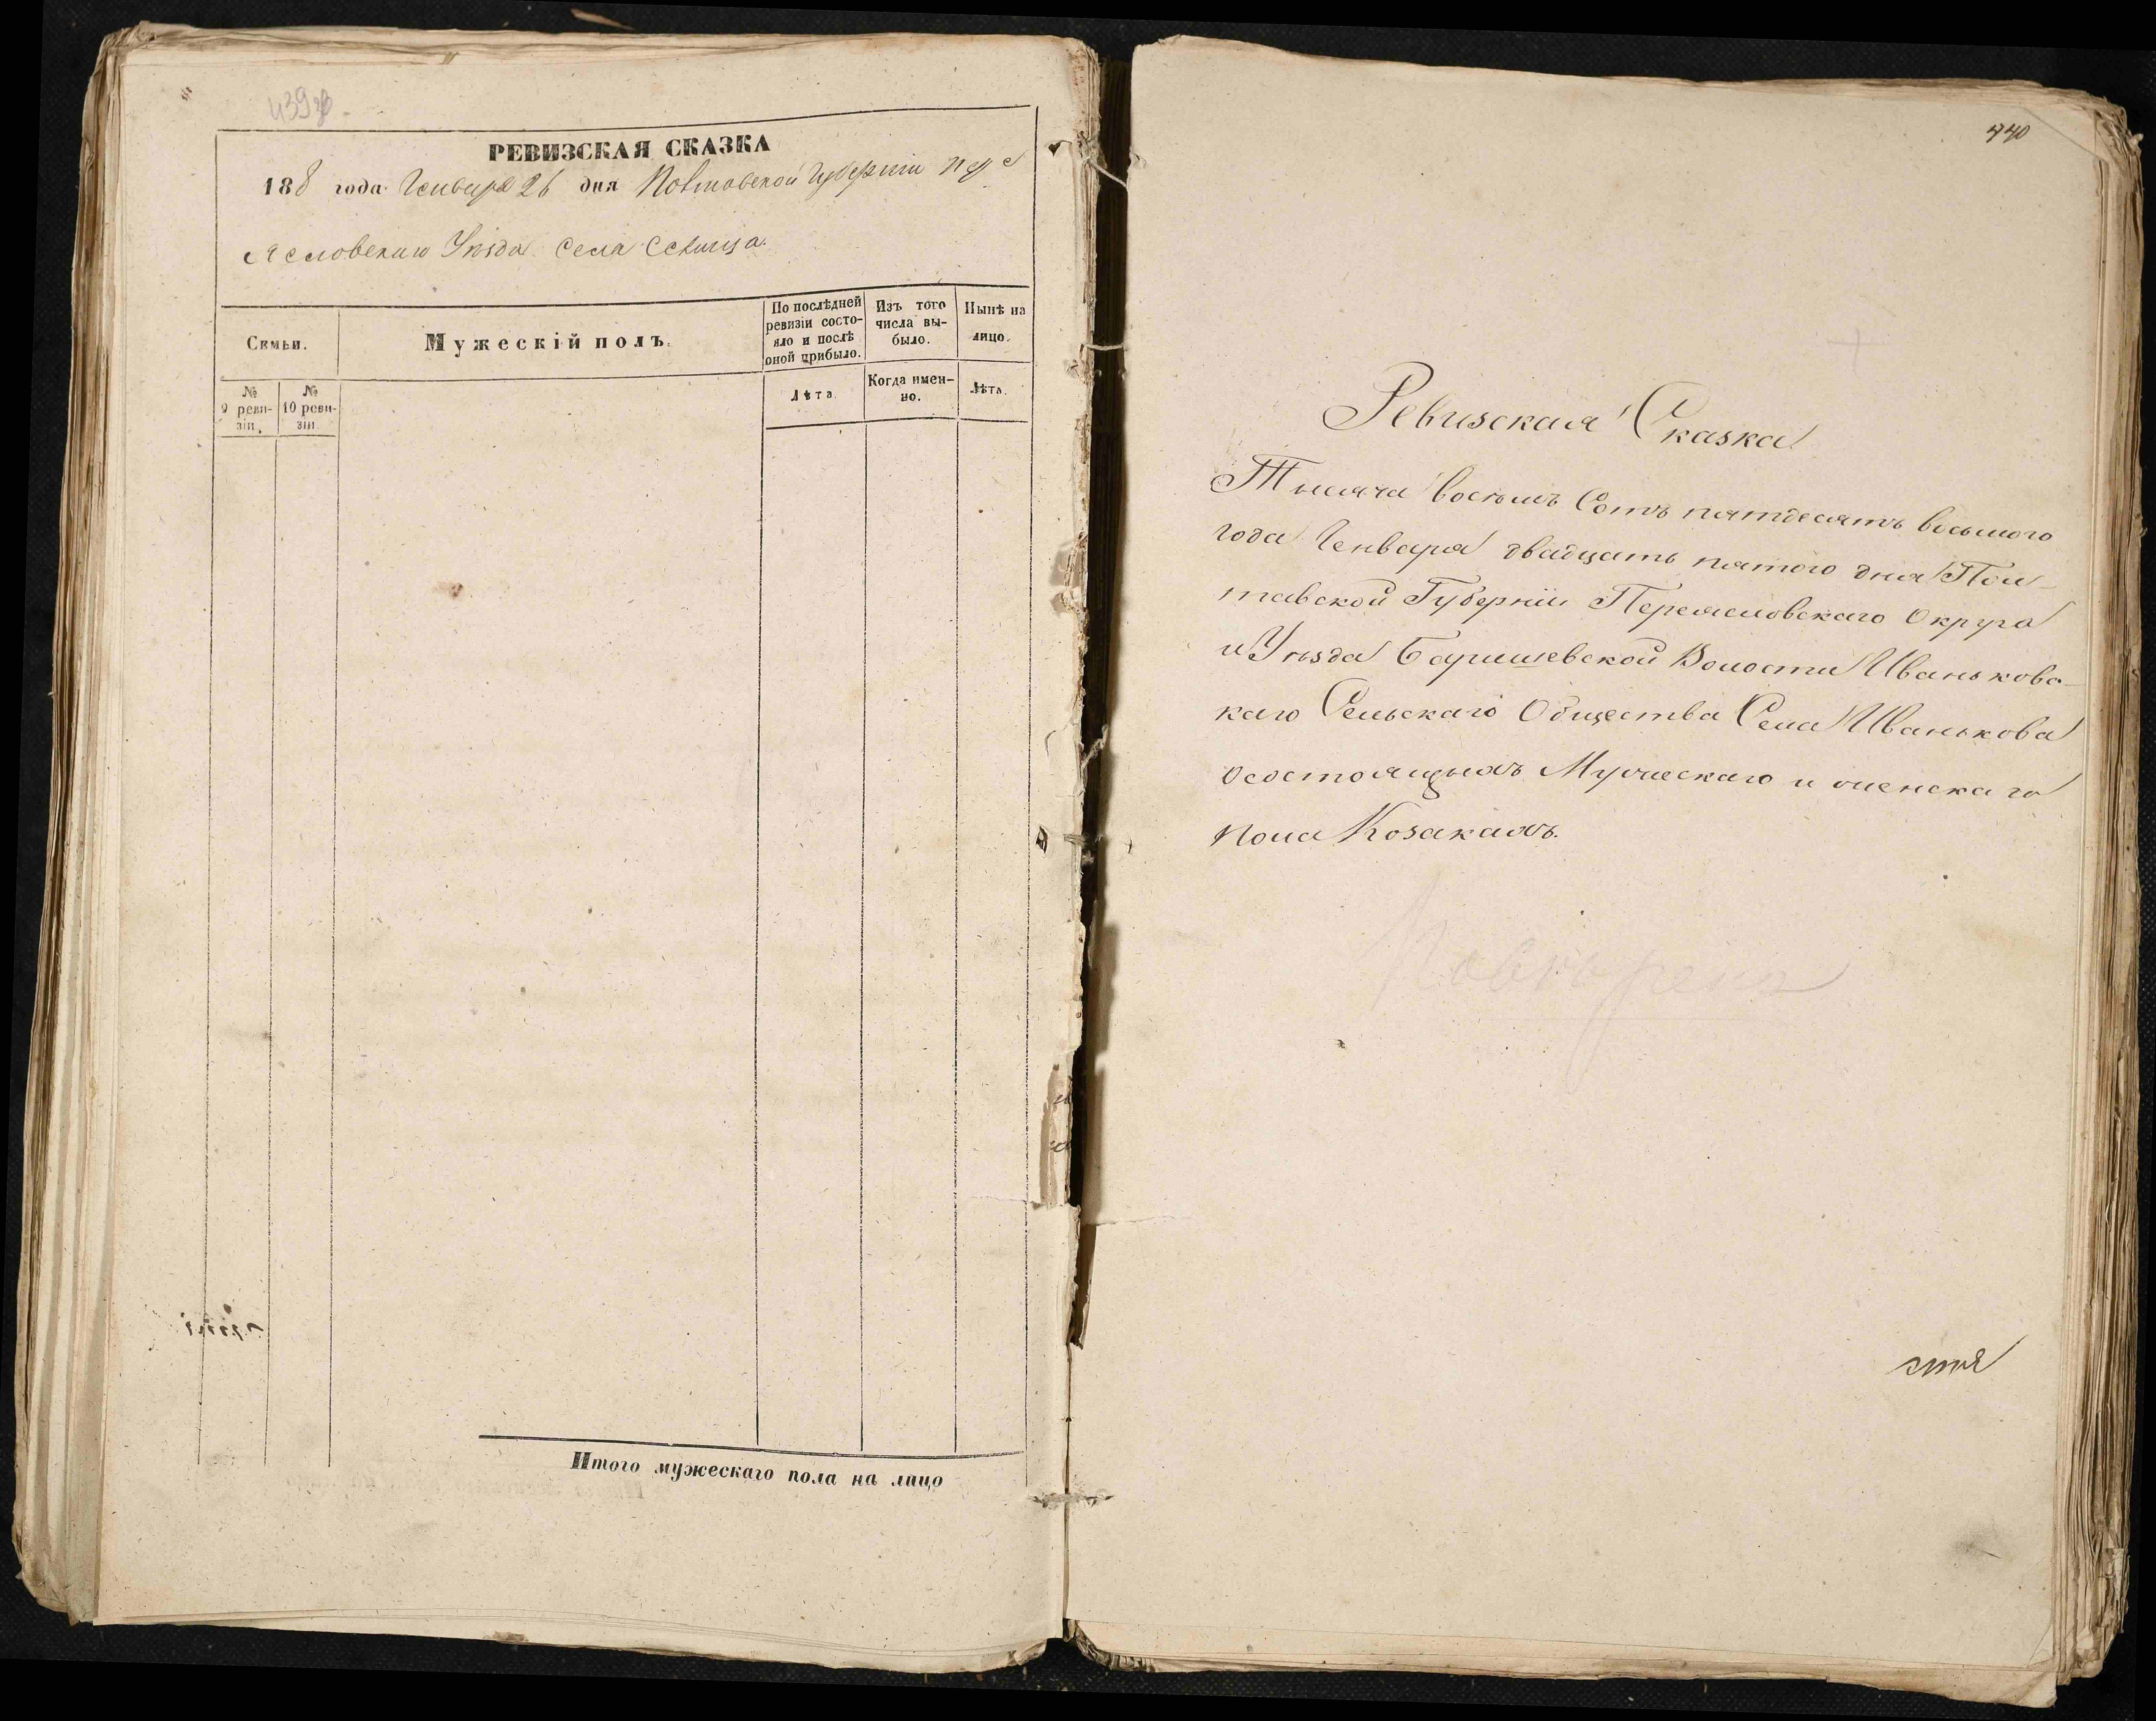 РЕВИЗСКАЯ СКАЗКА
188 года Генваря 26 дня Полтавской Губерніи Пере
Ясловскаго Уѣзда Села
Семьи.
Мужескій полъ.
По послѣдней ревизіи состояло и послѣ оной прибыло.
Изъ того числа выбыло.
Нынѣ на лицо.
№ 9 ревизіи.
№ 10 ревизіи.
Лѣта.
Когда именно.
Лѣта.
Итого мужескаго пола на лицо
440
Ревизская Сказка
Тысяча восемъ Сотъ пятдесятъ восьмого
года Генваря двадцать пятого дня Пол-
тавской Губерніи Переясловскаго Округа
и Уѣзда Баришевской Волости Иваньковс-
каго Сельскаго Общества Села Иванькова
о состоящихъ Мужескаго и женскаго
пола Козакахъ.